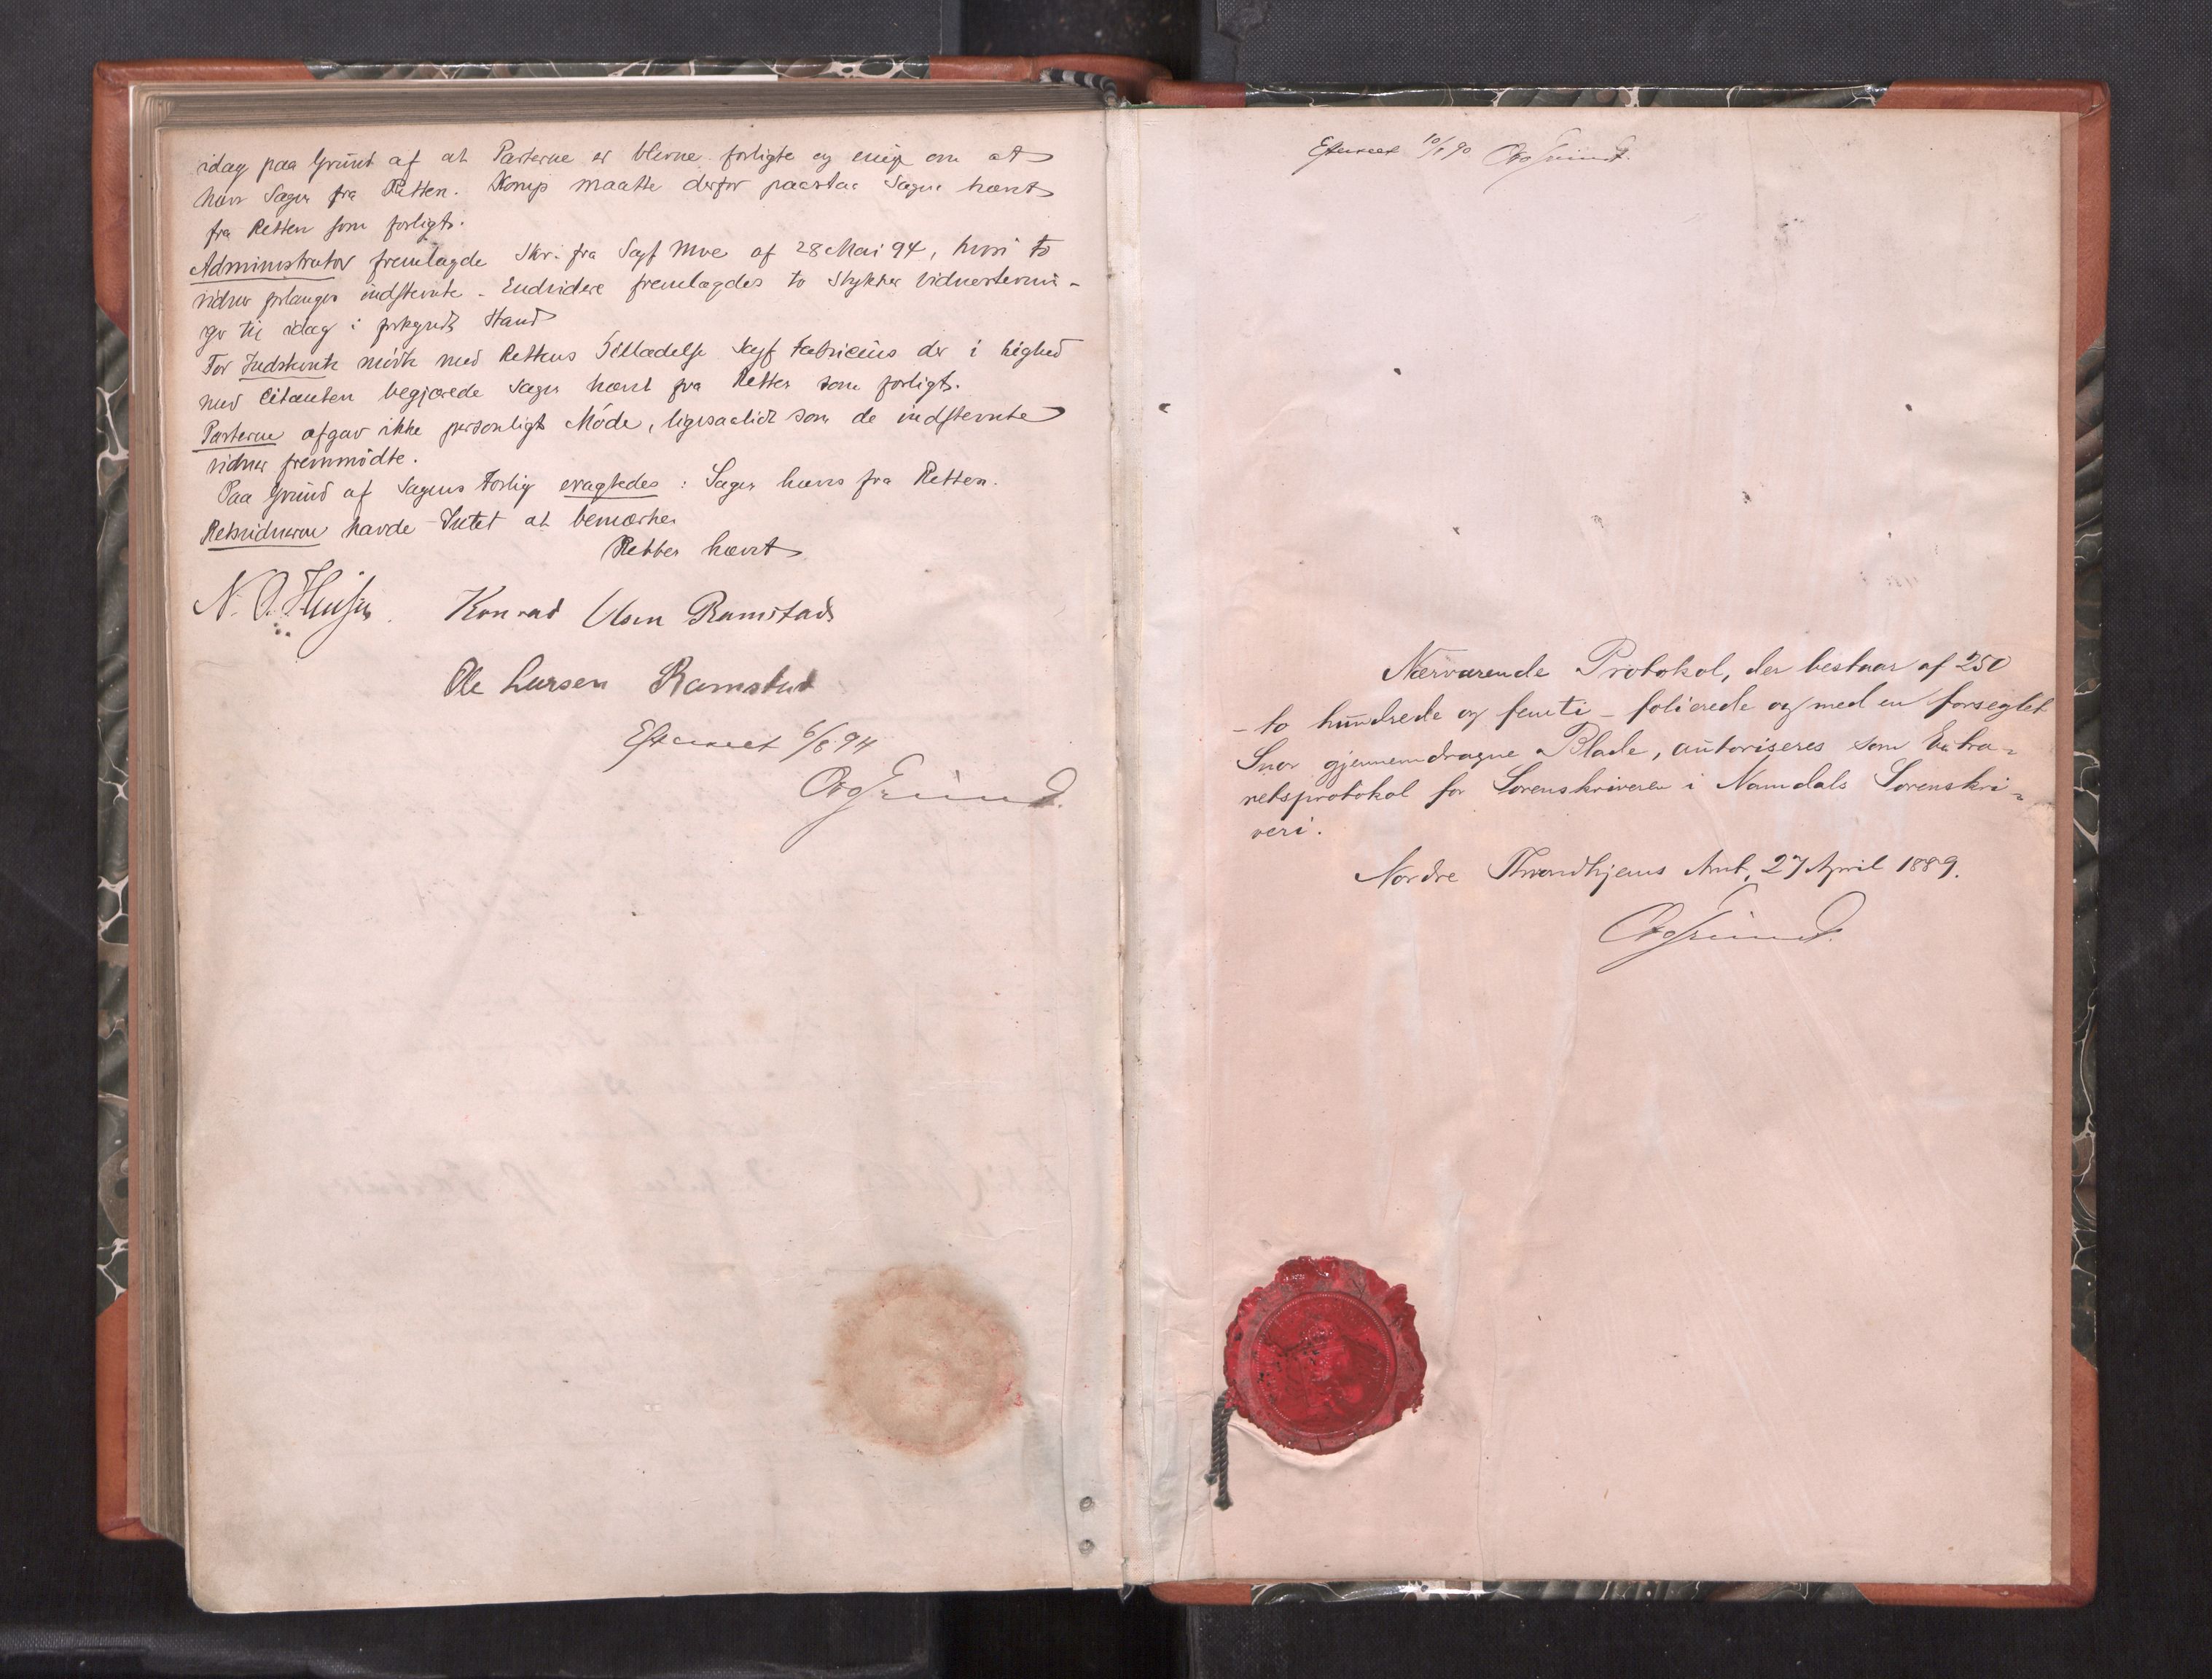 idag paa Grund af at Parterne er blevne forligte og enige om at
hæve Sagen fra Retten. Komp maatte derfor paastaa Sagen hævet
fra Retten som forligt.
Administrator fremlagde Skr. fra Sagf Moe af 28 Mai 94, hvori to
vidner forlanges indstevnte - Endvidere fremlagdes to Stykker Vidnestevnin-
ger til idag i forkyndt Stand
For Indstevnte mødte med Rettens Tilladelse Sagf Fabricius der i lighed
med Citanten begjærede Sagen hævet fra Retten som forligt.
Parterne afgav ikke personligt Møde, ligesaalidt som de indstevnte
vidner fremmødte.
Paa Grund af Sagens Forlig eragtedes : Sagen hæves fra Retten.
Retsvidnerne havde Intet at bemærke
Retten hævet
N. O.
Konrad Olsen Ramstad
Ole Larsen Ramstad
Efterseet 6/8 94
Efterseet 10/8 90
Nærværende Protokol, der bestaar af 250
- to hundrede og femti - folierede og med en forseglet
Snor gjennemdragne Blade, autoriseres som Extra-
retsprotokol for Sorenskriveren i Namdals Sorenskri-
veri.
Nordre Throndhjems Amt, 27 April 1889.